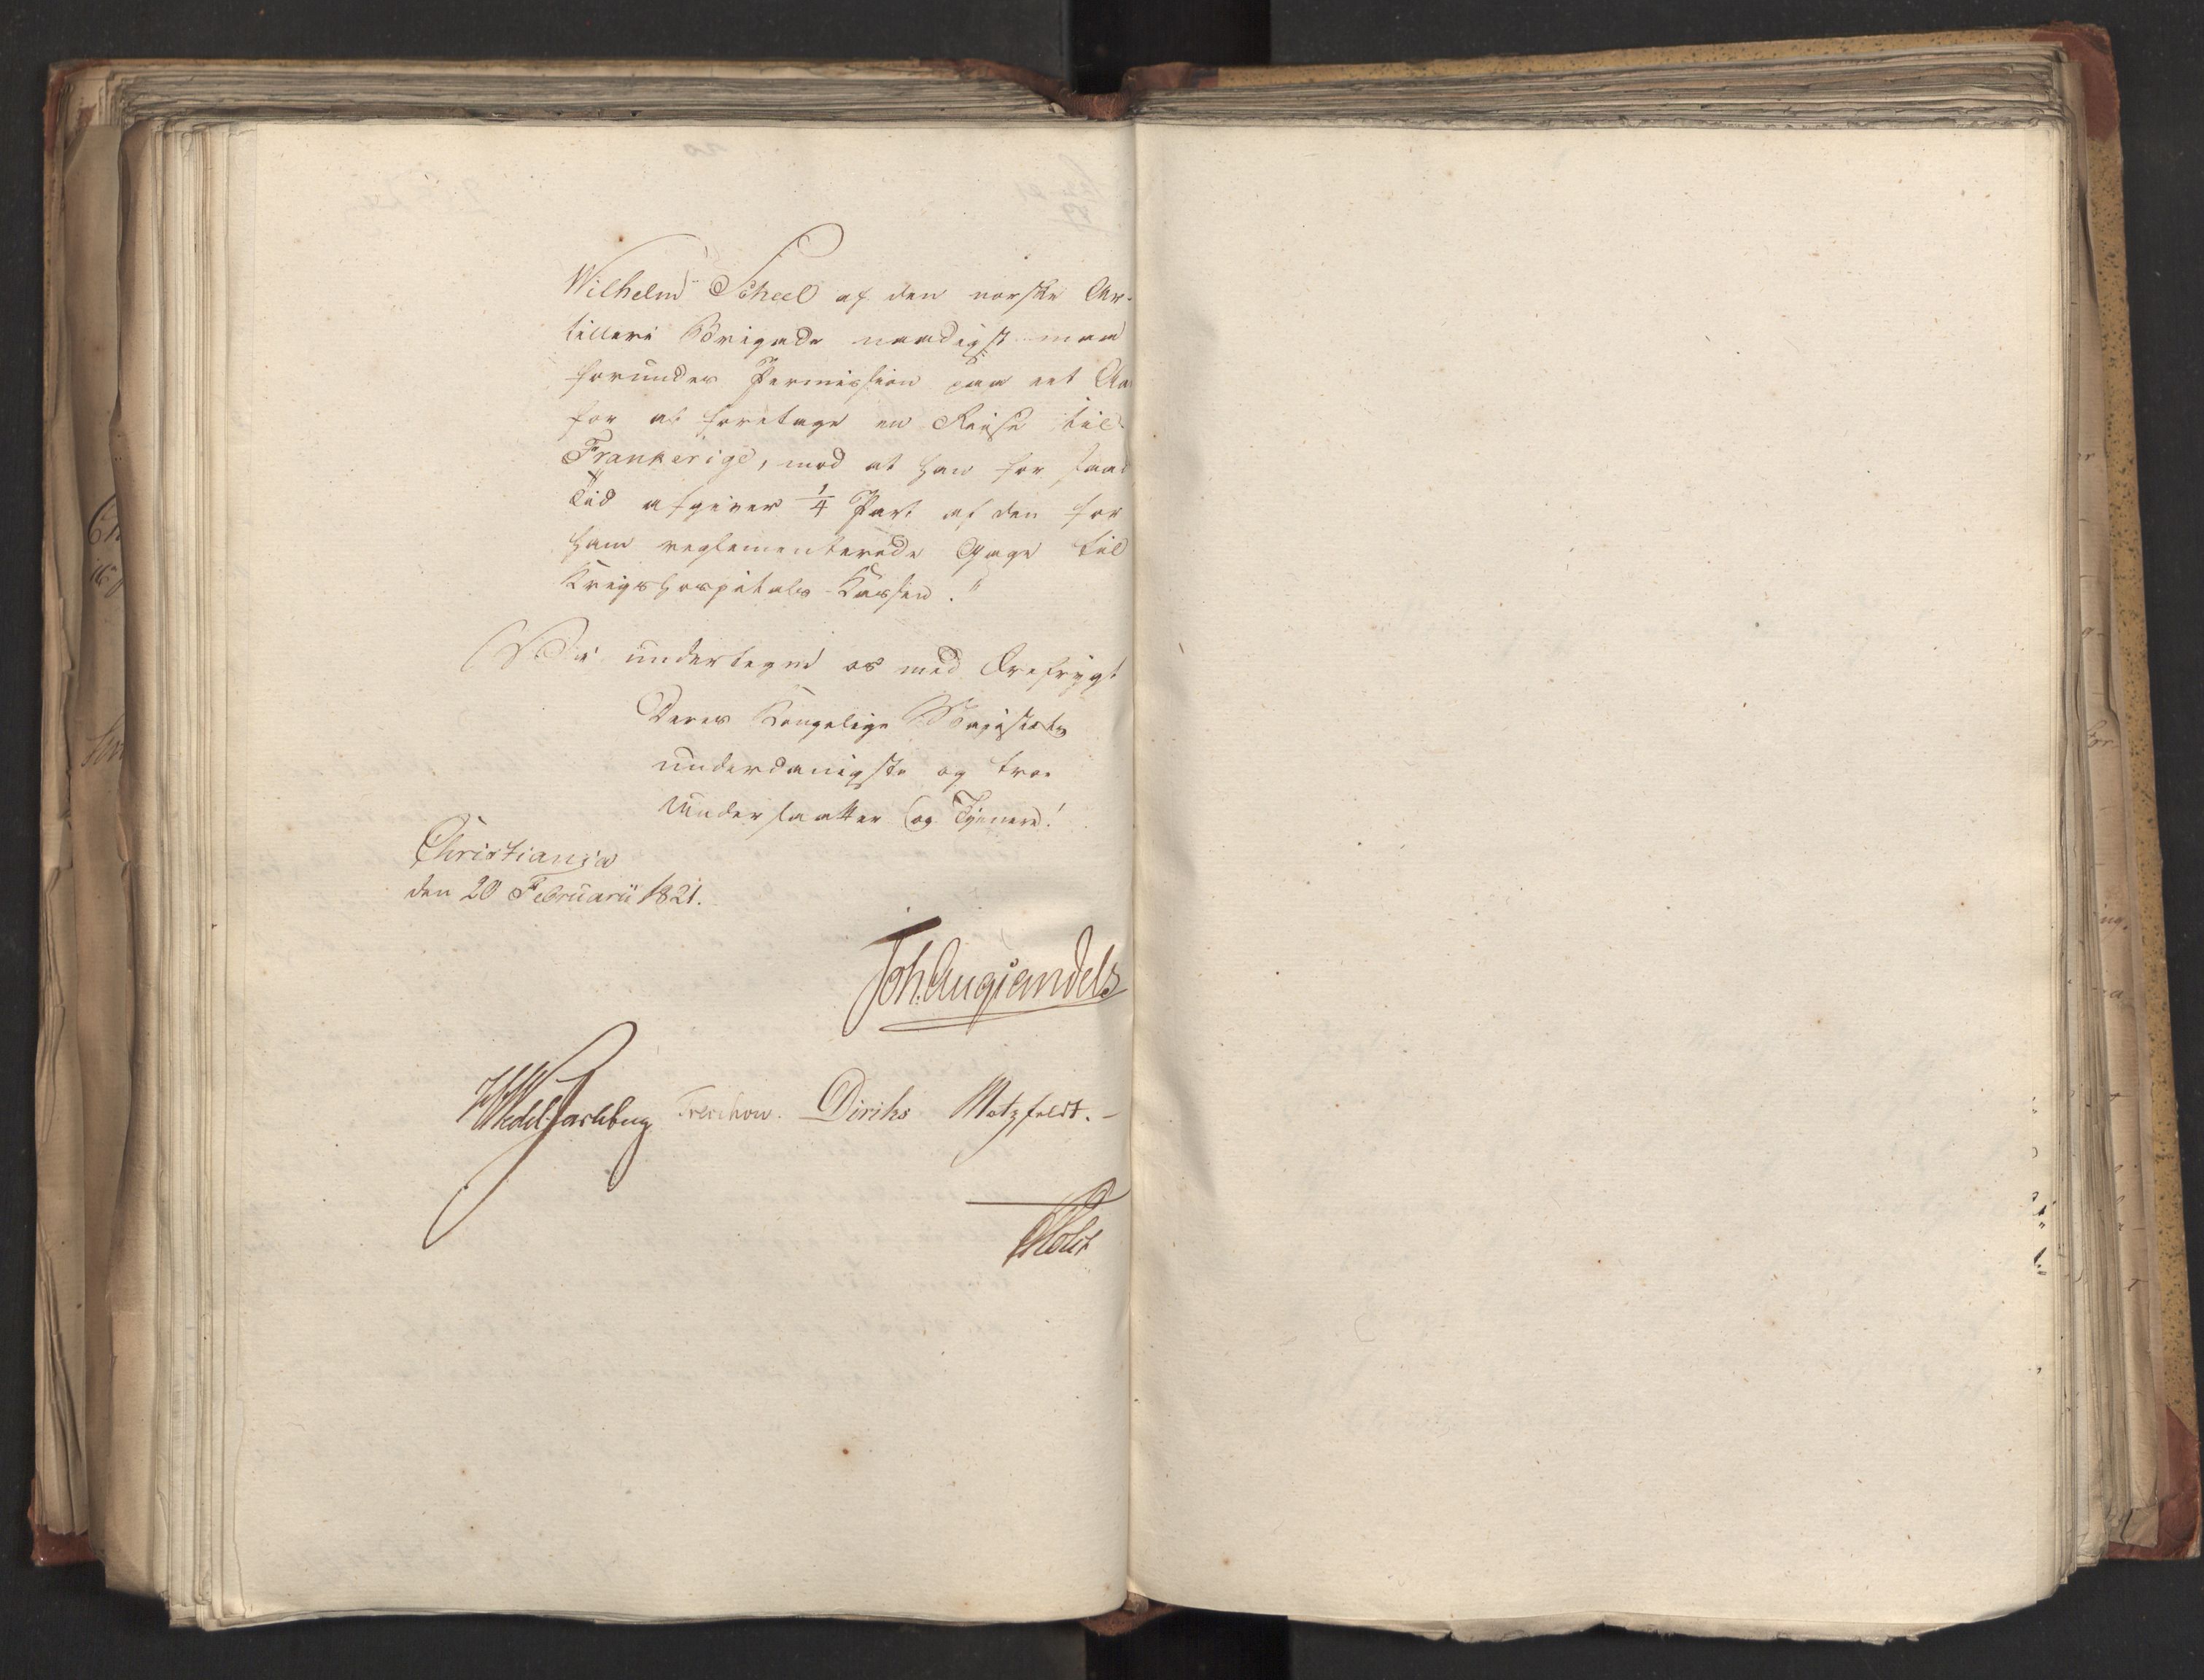 Wilhelm Scheel af den norske Ar-
tilleri Brigade naadigst maa
forundes Permission paa eet Aa
for at foretage en Reise til
Frankerige, mod at han for saad
Tid afgiver 1/4 Part af den for
ham reglementerede Gage til
Krigshospitals-Kassen."
Vi undertegne os med Ærefrygt
Deres Kongelige Majestæts
underdanigste og troe
Undersaatter og Tjenere!
Christiania
den 20 Februarii 1821.
Joh. Aug Sandels
HWedel Jarlsberg Treschow. Diriks Motzfeldt.-
Holst